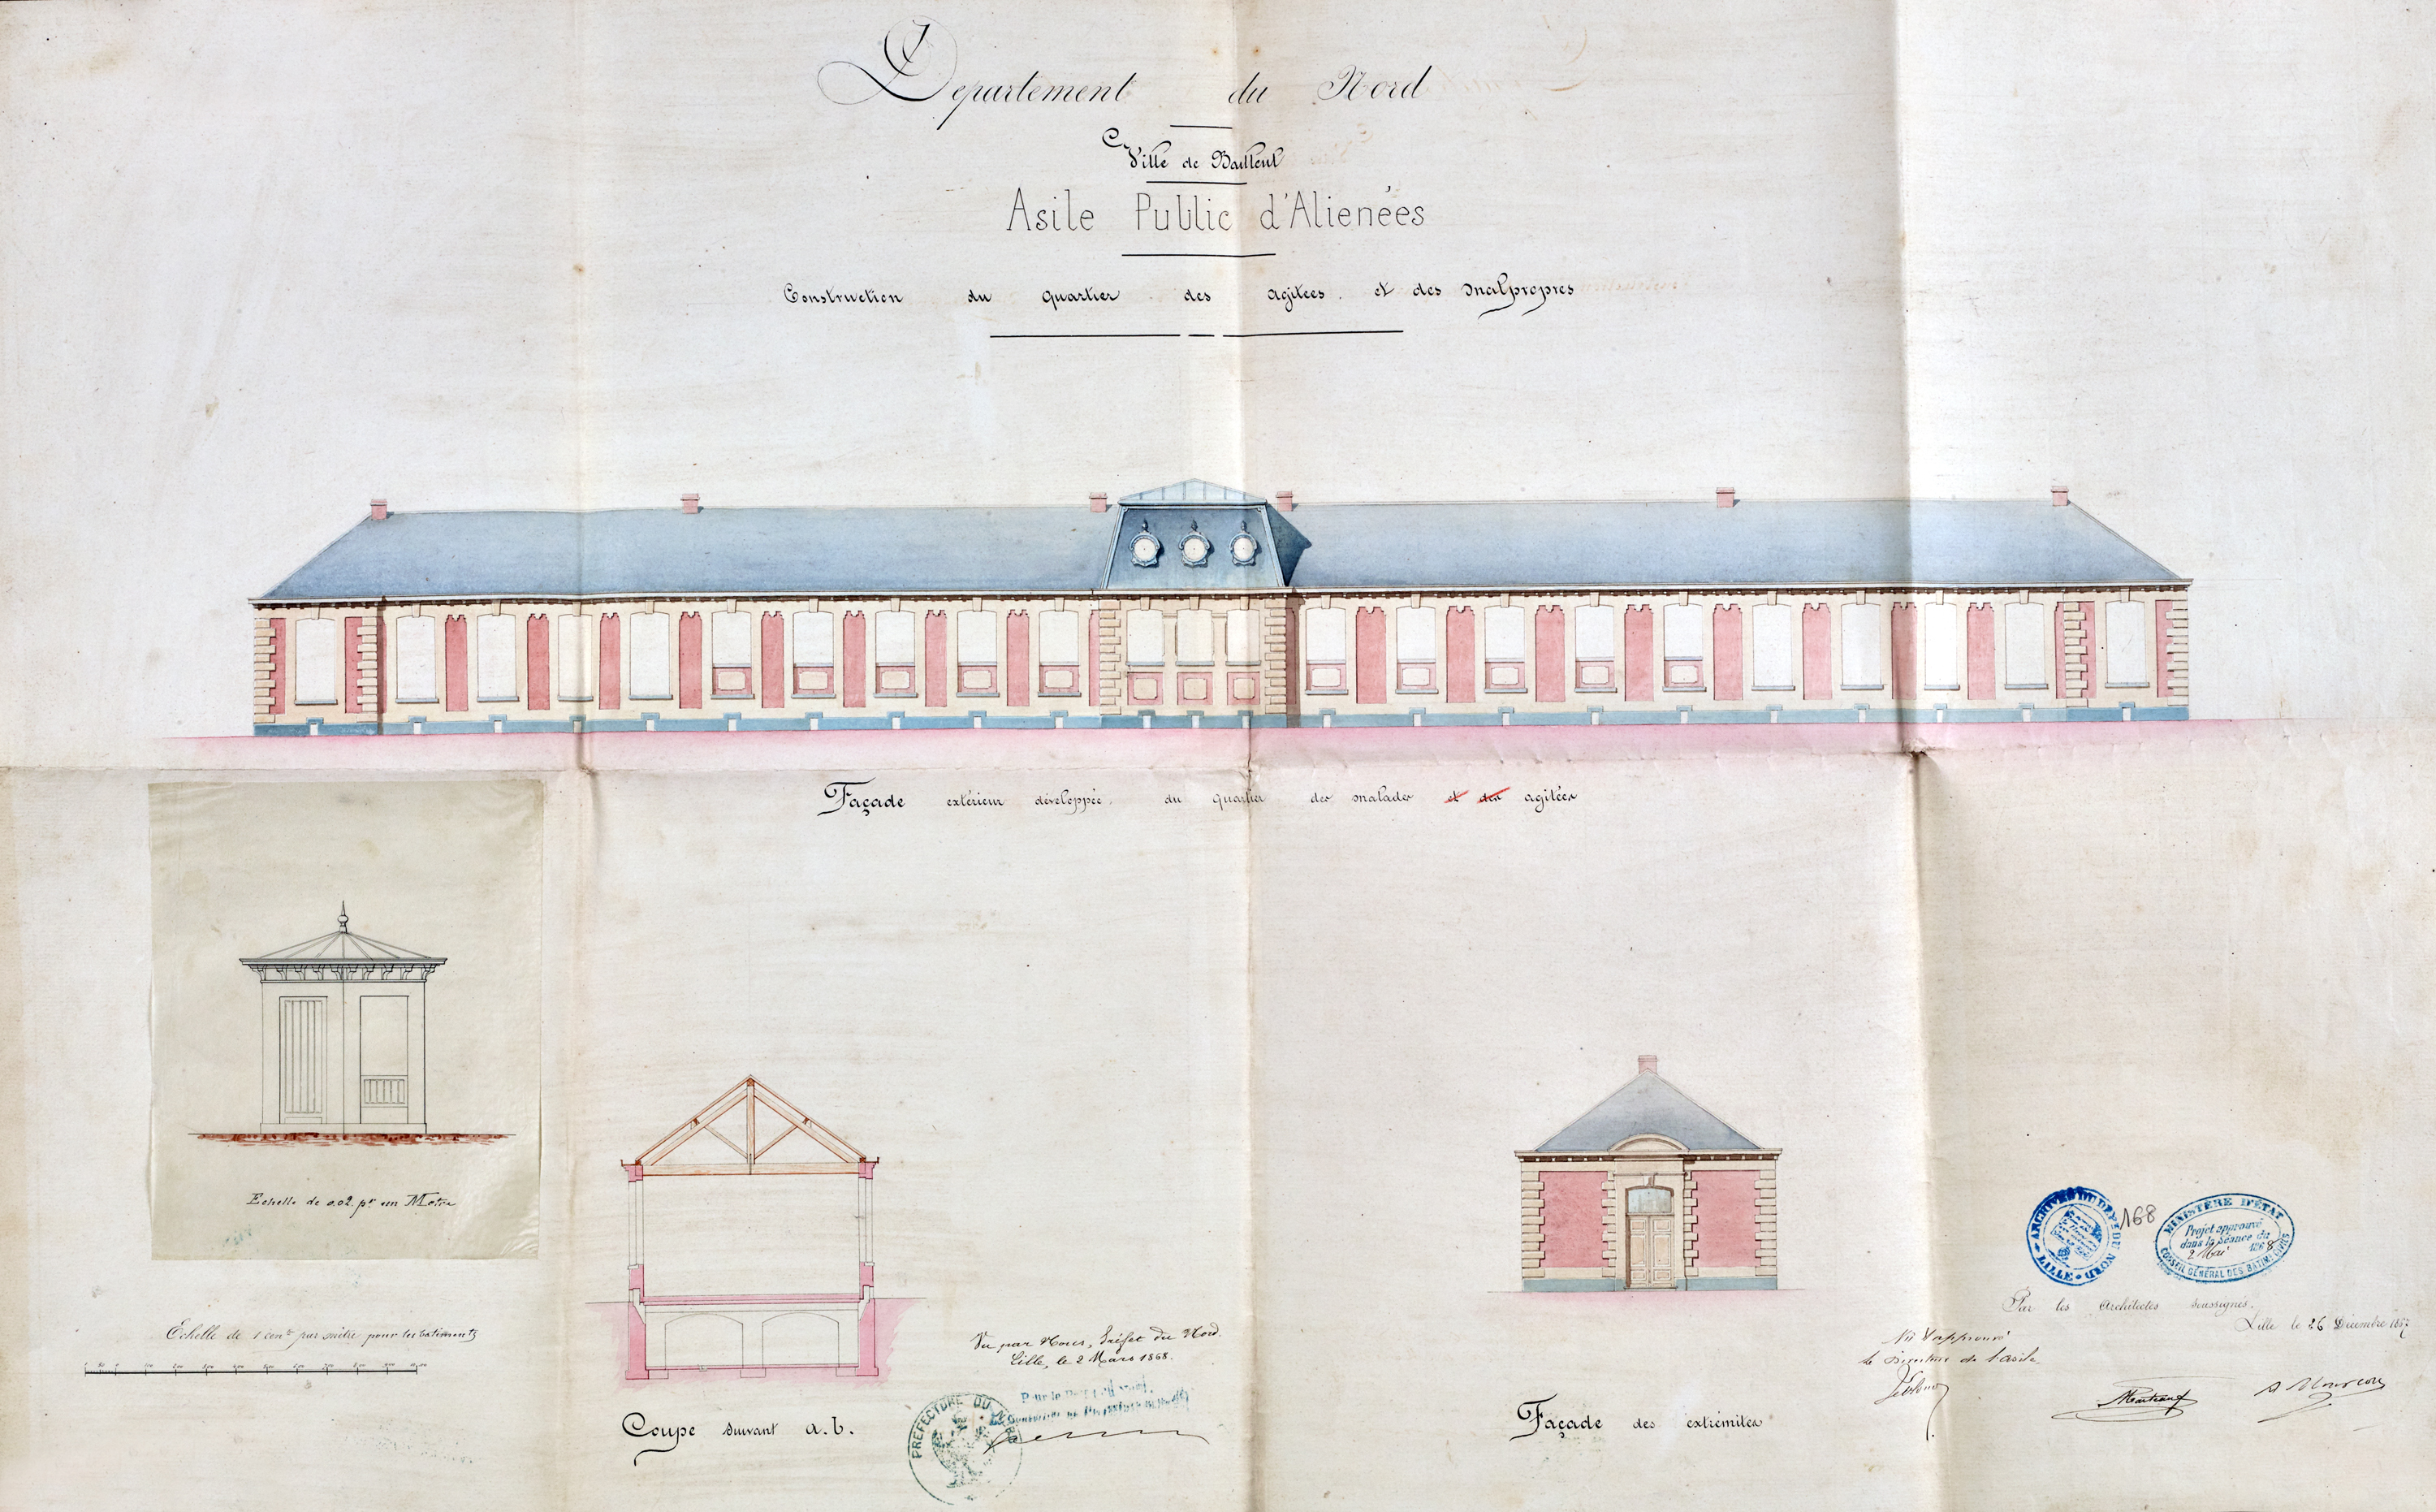 Departement du Nord
Ville de Bailleul
Asile Public d'Alienées
Construction du quartier des agitees et des malpropres
Façade extérieur développée du quartier des malades et des agitées
Echelle de 0.02 pr un Mètre
Echelle de 1 cent. par mètre pour les bâtiments
Coupe suivant a.b.
Vu par Nous, Préfet du Nord.
Lille, le 2 Mars 1868.
PREFECTURE DU NORD
Façade des extrémités
ARCHIVES DU DEPT DU NORD
LILLE
168
MINISTÈRE D'ÉTAT
Projet approuvé
dans la Séance du
2 Mai 1868
CONSEIL GÉNÉRAL DES BATIMTS CIVILS
Par les Architectes soussignés.
Lille le 26 Décembre 1867
Vu & approuvé
le Directeur de l'asile